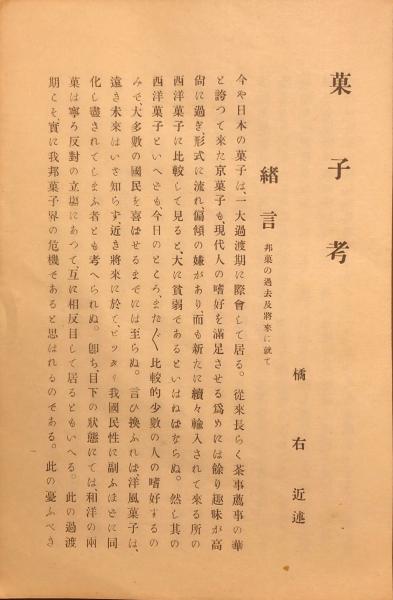 菓子考
橘右近述
緒言 邦菓の過去及將來に就て
今や日本の菓子は、一大過渡期に際會して居る。從來長らく茶事薦事の華
と誇つて來た京菓子も、現代人の嗜好を滿足させる爲めには餘り趣味が高
尙に過ぎ、形式に流れ、偏傾の嫌があり、而も新たに續々輸入されて來る所の
西洋菓子に比較して見ると、大に貧弱であるといはねばならぬ。然し其の
西洋菓子といへども、今日のところ、まだ〱比較的少數の人の嗜好するの
みで、大多數の國民を喜ばせるまでには至らぬ。言ひ換ふれば、洋風菓子は、
遠き未來はいざ知らず、近き將來に於て、ピッタリ我國民性に副ふほどに同
化し盡されてしまふ者とも考へられぬ。卽ち目下の狀態にては和洋の兩
菓は寧ろ反對の立場にあつて、互に相反目して居るともいへる。此の過渡
期こそ、實に我邦菓子界の危機であると思はれるのである。此の憂ふべき